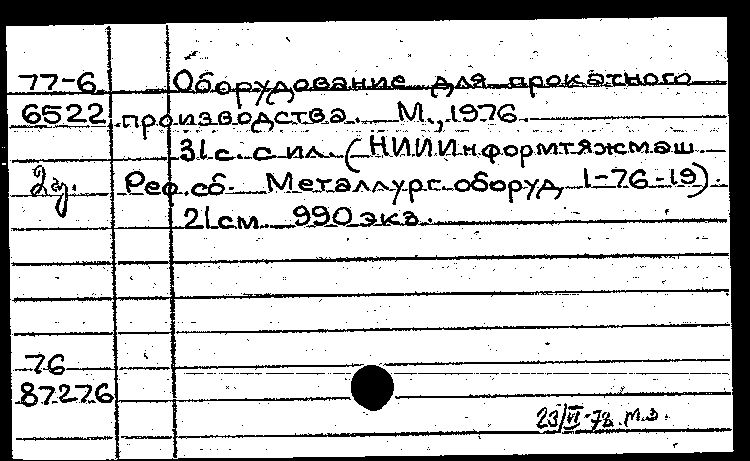 77-6 Оборудование для прокатного
6522 производства. М., 1976.
31с. с ил. (НИИИнформтяжмаш.
2 Реф. сб. Металлург. оборуд, 1-76-19).
21см 990 экз.
76
87276
23/VI-78. м.з.